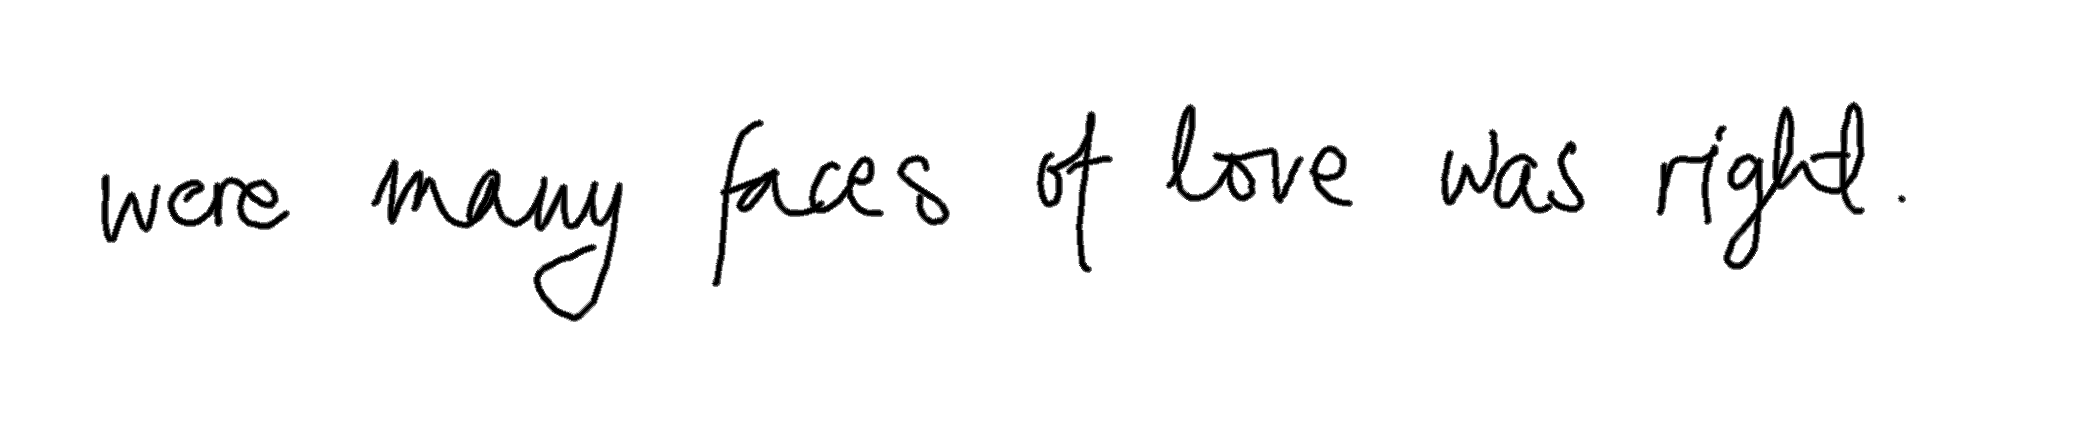 were many faces of love was right.